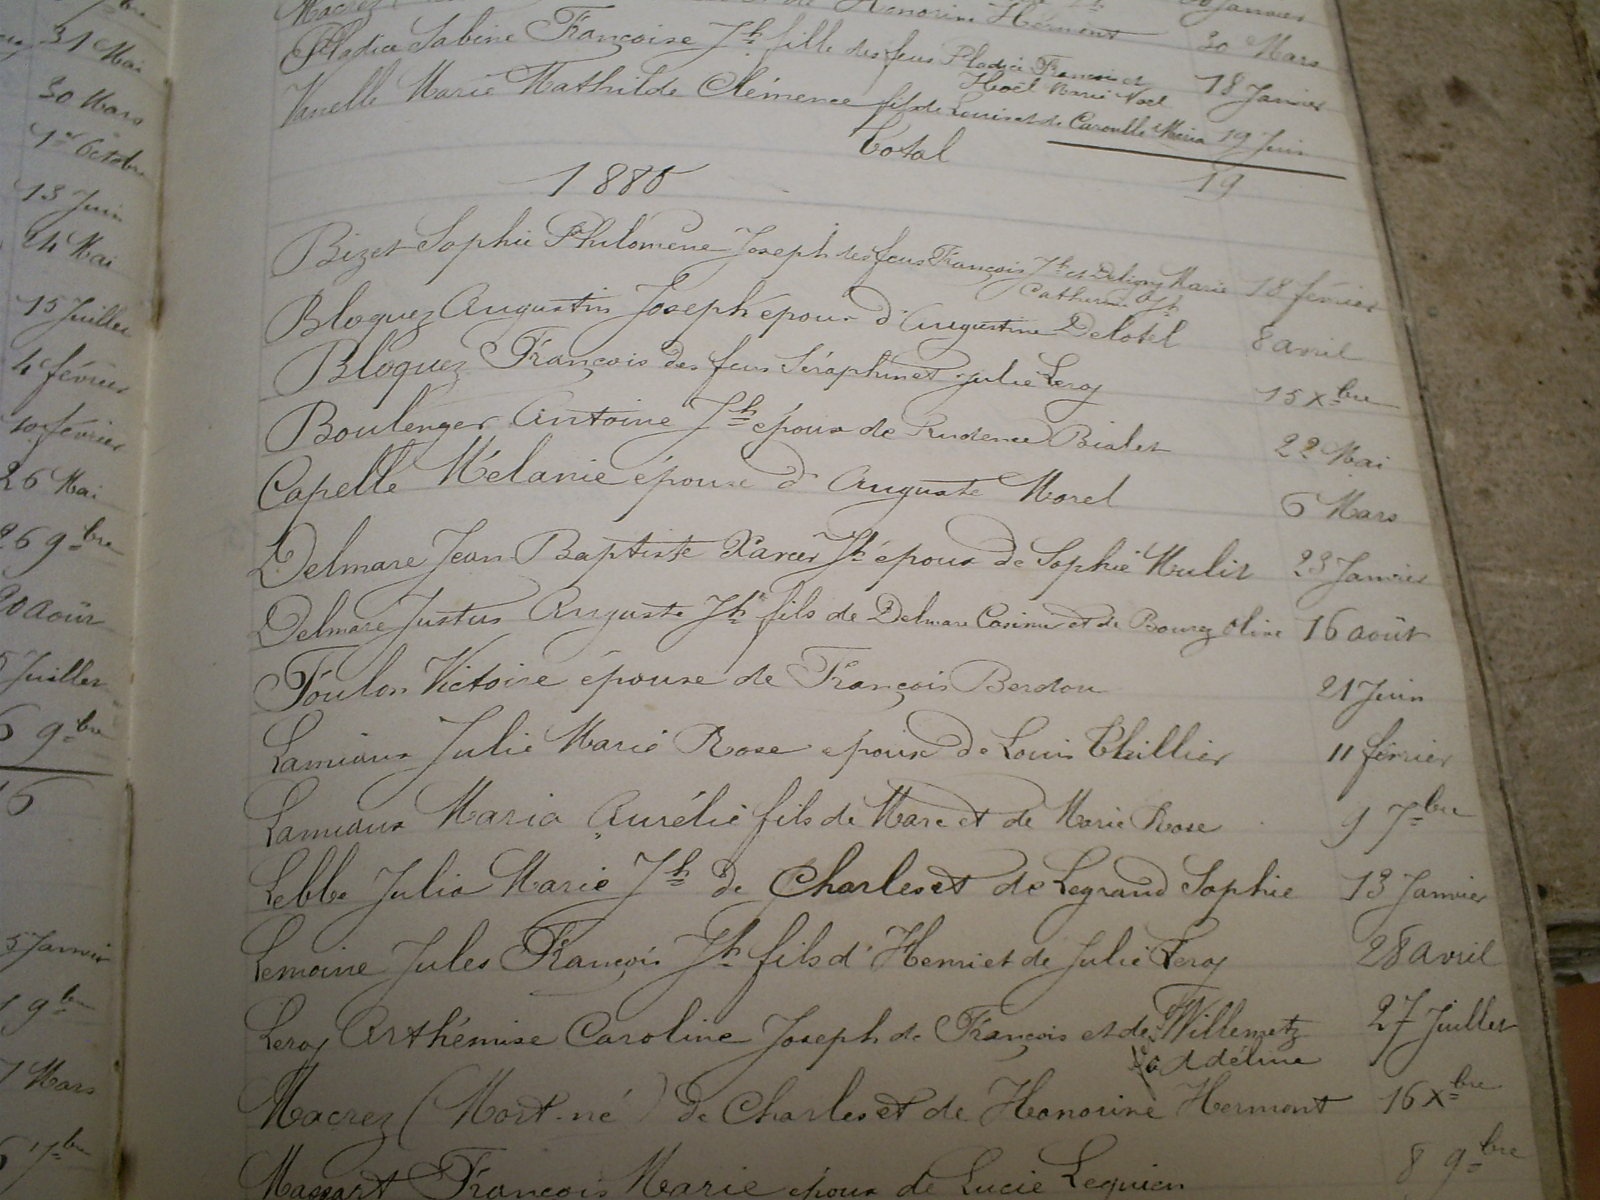 Honorine Hermont 30 Mars
Pladice Sabine Françoise Jh fille des feus Pladice François et
Marie 18 Janvier
Vanelle Marie Mathilde Clémence fils de Louis et de Maria 19 Juin
Total 19
1880
Bizet Sophie Philomène Joseph des feus François Jh et Marie 18 février
Catherine Jh
Bloquez Augustin Joseph époux d'Augustine Delotel 8 avril
Bloquez François des feus Séraphin et Julie Leroy 15 Xbre
Boulenger Antoine Jh époux de Prudence Bialet 22 Mai
Capelle Mélanie épouse d'Auguste Morel 6 Mars
Delmare Jean Baptiste Xavier Jh époux de Sophie Mulir 23 Janvier
Delmare Justus Auguste Jh fils de Delmare Casimir et de Bourez Oline 16 août
Foulon Victoire épouse de François Berdou 21 Juin
Lamiaux Julie Marie Rose épouse de Louis Thillier 11 février
Lamiaux Maria Aurélie fils de Marc et de Marie Rose 7bre
Lebbe Julia Marie Jh de Charles et de Legrand Sophie 13 Janvier
Lemoine Jules François Jh fils d'Henri et de Julie Leroy 28 avril
Leroy Arthémise Caroline Joseph de François et de Willemetz 27 Juillet
Adéline
Macrez (Mort-né) de Charles et de Honorine Hermont 16 Xbre
Massart François Marie époux de Lucie Lequien 8 9bre
31 Mai
30 Mars
1er Octobre
13 Juin
24 Mai
15 Juillet
4 février
10 février
26 Mai
26 9bre
20 août
Juillet
9bre
16
Janvier
9bre
Mars
7bre